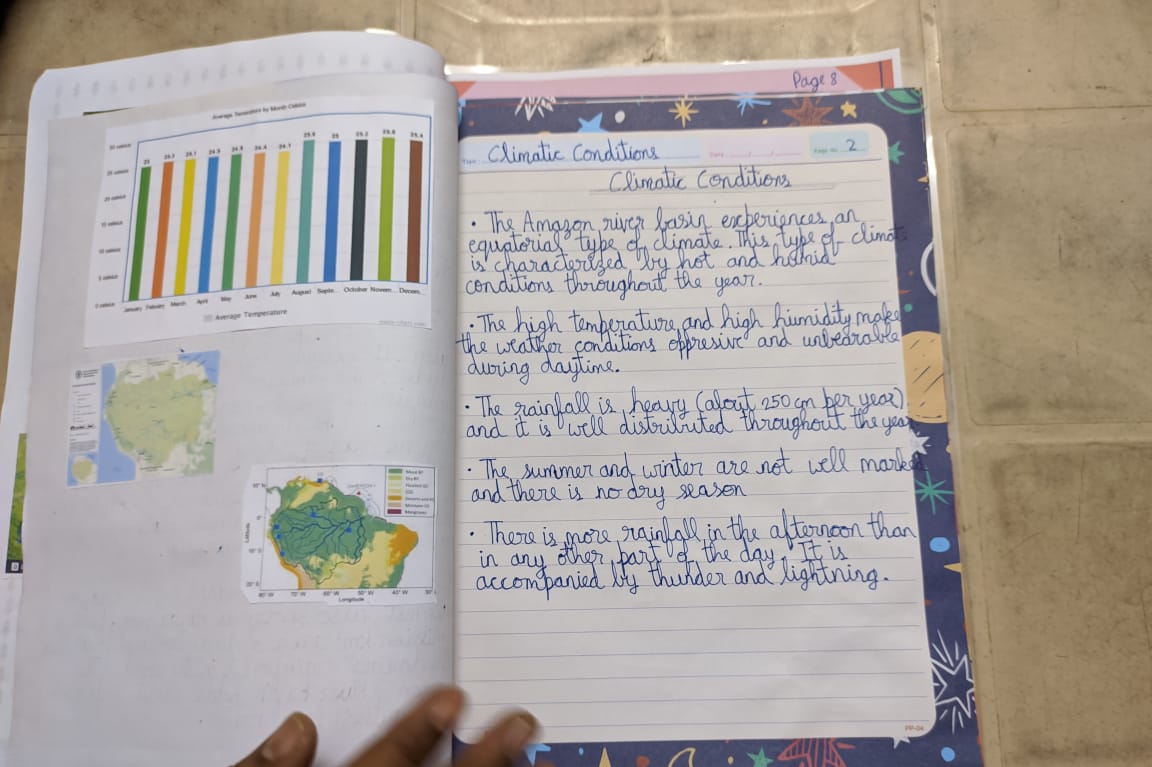 Average Temperature by Month Celsius
30 celsius
25 celsius
20 celsius
15 celsius
10 celsius
5 celsius
0 celsius
23
24.1
24.3
24.4
24.1
25.9
25
25.4
January February March April May June July August Septe... October Novem... Decem...
Average Temperature
Latitude
0°
80° W 70° W 60° W 50° W 40° W 30°
Longitude
Page 8
Climatic Conditions
Page No. 2
Climatic Conditions
• The Amazon river basin experiences an
equatorial type of climate. This type of climate
is characterized by hot and humid
conditions throughout the year.
• The high temperature and high humidity make
the weather conditions oppresive and unbearable
during daytime.
• The rainfall is heavy (about 250 cm per year)
and it is well distributed throughout the year
• The summer and winter are not well marked
and there is no dry season
• There is more rainfall in the afternoon than
in any other part of the day. It is
accompanied by thunder and lightning.
PP-04